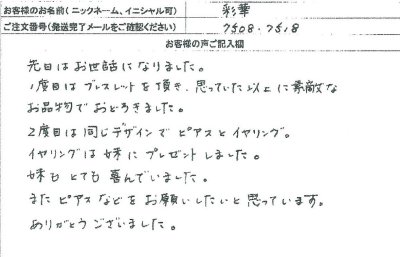 お客様のお名前(ニックネーム、イニシャル可) 彩華
ご注文番号(発送完了メールをご確認ください) 7508・7518
お客様の声ご記入欄
先日はお世話になりました。
1度目はブレスレットを頂き、思っていた以上に素敵な
お品物でおどろきました。
2度目は同じデザインでピアスとイヤリング。
イヤリングは妹にプレゼントしました。
妹もとても喜んでいました。
またピアスなどをお願いしたいと思っています。
ありがとうございました。